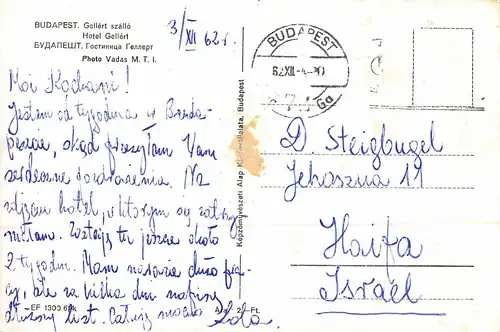 BUDAPEST. Gellért szálló
Hotel Gellért
БУДАПЕШТ. Гостиница Геллерт
Photo Vadas M. T. I.
3/XII 62 r.
Moi Kochani!
Jestem od tygodnia w Buda-
peszcie, skąd przesyłam Wam
serdeczne pozdrowienia. Na
zdjęciu hotel, w którym się zatrzy-
małam. Zostaję tu jeszcze około
2 tygodni. Mam narazie dużo pra-
cy, ale za kilka dni napiszę
dłuższy list. Całuję mocno
Lola
EF 1303 624
2,- Ft.
Képzőművészeti Alap Kiadóvállalata, Budapest
BUDAPEST
62 XII -4
D. Steigbugel
Jehoszua 14
Haifa
Israel